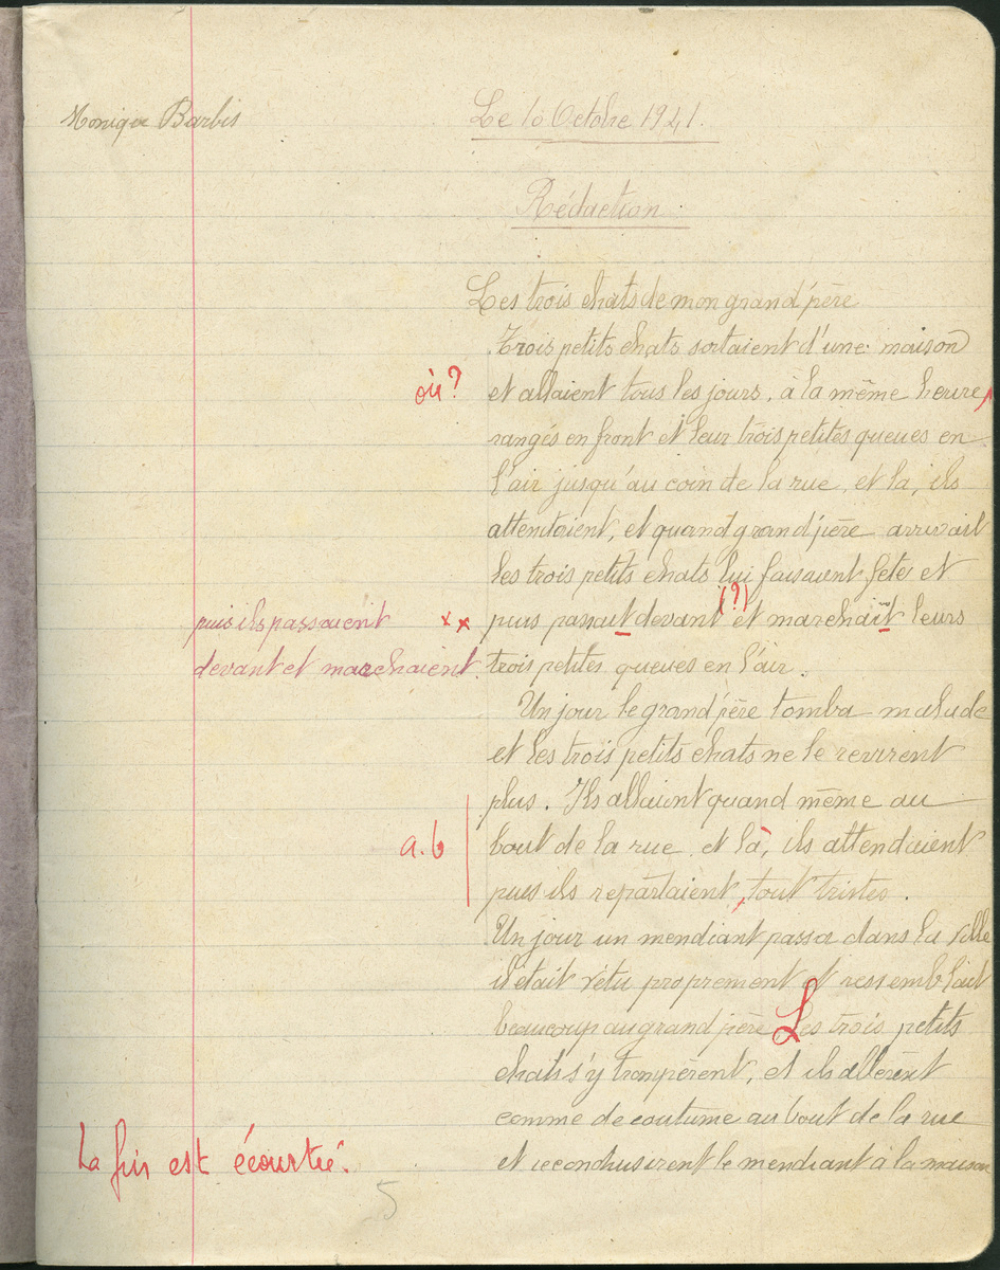 Monique Barbis
Le 10 Octobre 1941.
Rédaction.
Les trois chats de mon grand'père
Trois petits chats sortaient d'une maison
où ?
et allaient tous les jours, à la même heure,
rangés en front et leur trois petites queues en
l'air jusqu'au coin de la rue, et là, ils
attendaient, et quand grand'père arrivait
les trois petits chats lui faisaient fête et
(?)
puis ils passaient
x x
puis passait devant et marchait leurs
devant et marchaient.
trois petites queues en l'air.
Un jour le grand'père tomba malade
et les trois petits chats ne le revirent
plus. Ils allaient quand même au
a.b
bout de la rue et là, ils attendaient
puis ils repartaient, tout tristes.
Un jour un mendiant passa dans la ville
il était vêtu proprement et ressemblait
beaucoup au grand'père Les trois petits
chats s'y trompèrent, et ils allèrent
comme de coutume au bout de la rue
et reconduisirent le mendiant à la maison
La fin est écourtée.
5